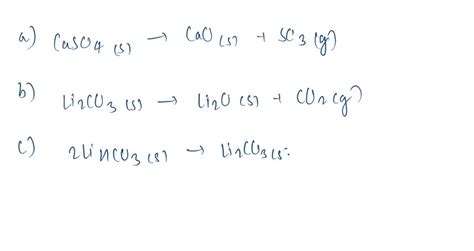 a) CaSO4 (s) → CaO (s) + SO3 (g)
b) Li2CO3 (s) → Li2O (s) + CO2 (g)
c) 2LiHCO3 (s) → Li2CO3 (s